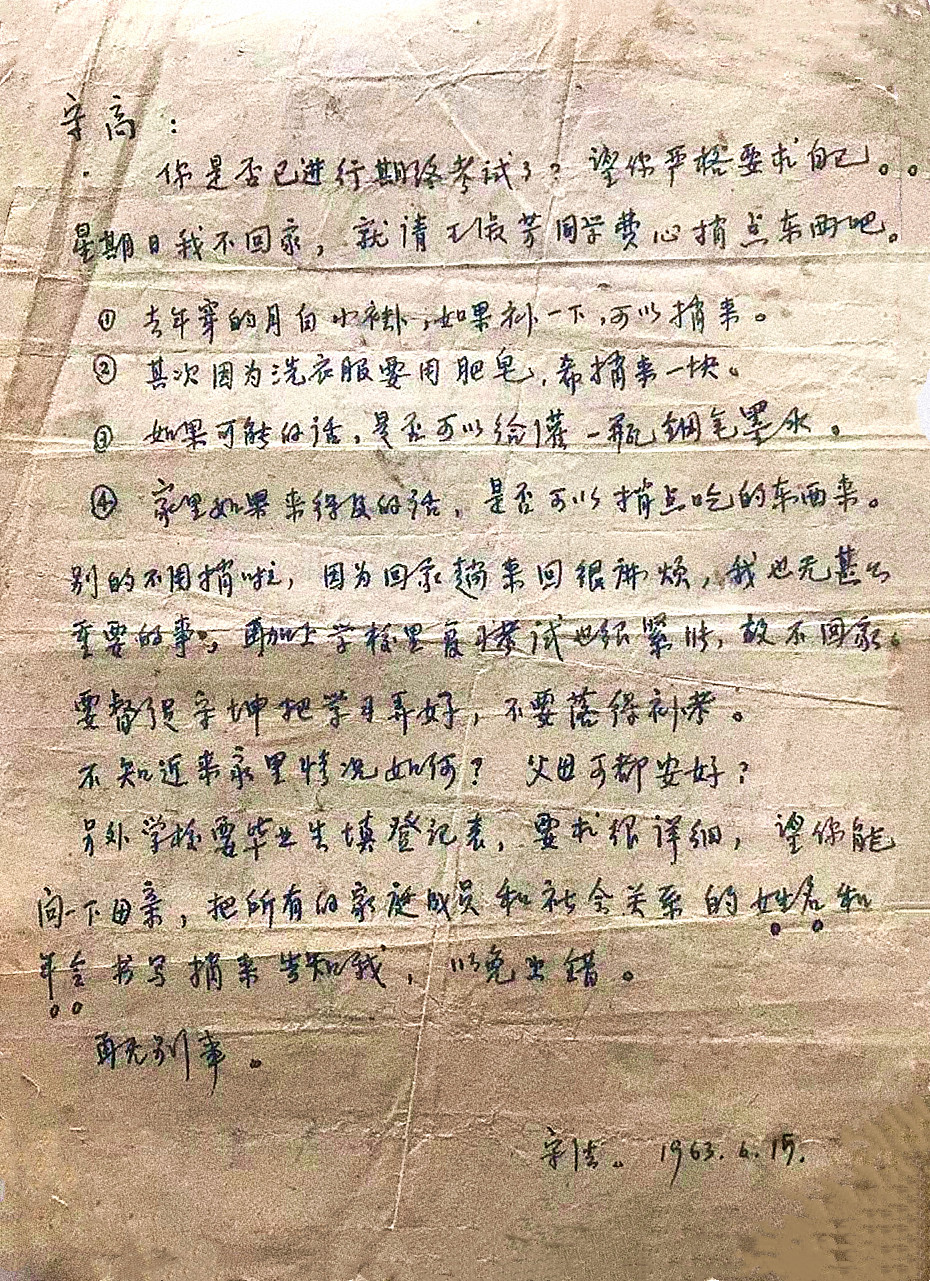 守高：
你是否已进行期终考试了？望你严格要求自己。
星期日我不回家，就请王淑芳同学费心捎点东西吧。
① 去年穿的月白小褂，如果补一下，可以捎来。
② 其次因为洗衣服要用肥皂，希捎来一块。
③ 如果可能的话，是否可以给灌一瓶钢笔墨水。
④ 家里如果来得及的话，是否可以捎点吃的东西来。
别的不用捎啦，因为回家趟来回很麻烦，我也无甚么
重要的事，再加上学校里复习考试也很紧张，故不回家。
要督促守坤把学习弄好，不要落得补考。
不知近来家里情况如何？父母可都安好？
另外学校要毕业生填登记表，要求很详细，望你能
问一下母亲，把所有的家庭成员和社会关系的姓名和
年令书写捎来告知我，以免出错。
再无别事。
守 1963.6.15.